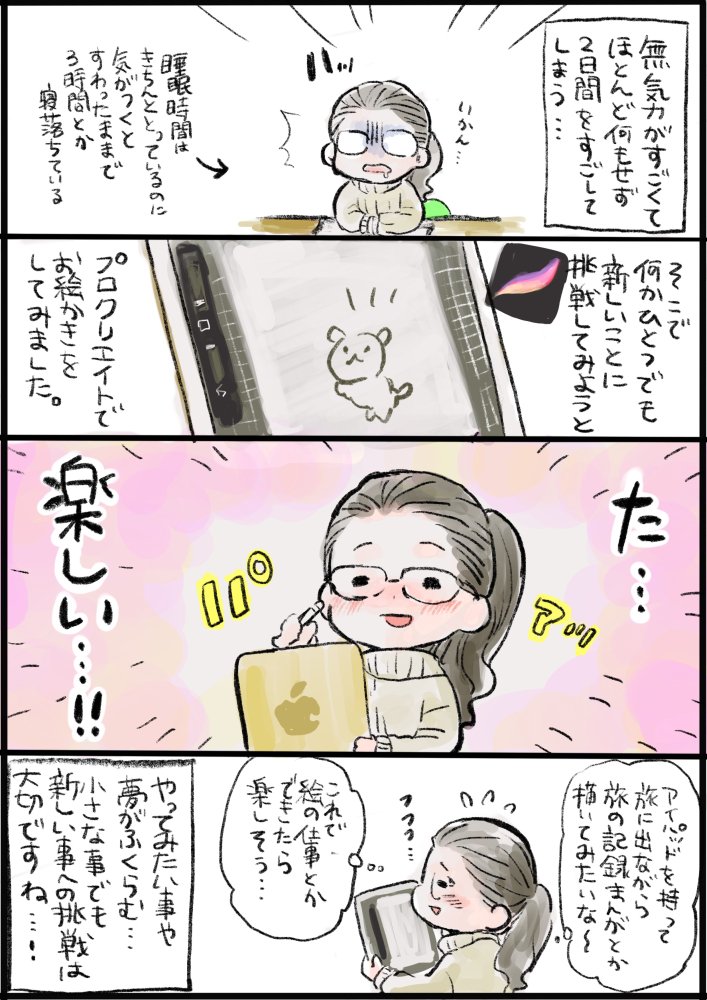 無気力がすごくて
ほとんど何もせず
2日間をすごして
しまう…
いかん…
ハッ
睡眠時間は
きちんととっているのに
気がつくと
すわったままで
3時間とか
寝落ちている
そこで
何かひとつでも
新しいことに
挑戦してみようと
プロクリエイトで
お絵かきを
してみました。
た…
パアッ
楽しい…!!
アイパッドを持って
旅に出ながら
旅の記録まんがとか
描いてみたいな〜
これで
絵の仕事とか
できたら
楽しそう…
やってみたい事や
夢がふくらむ…
小さな事でも
新しい事への挑戦は
大切ですね…!